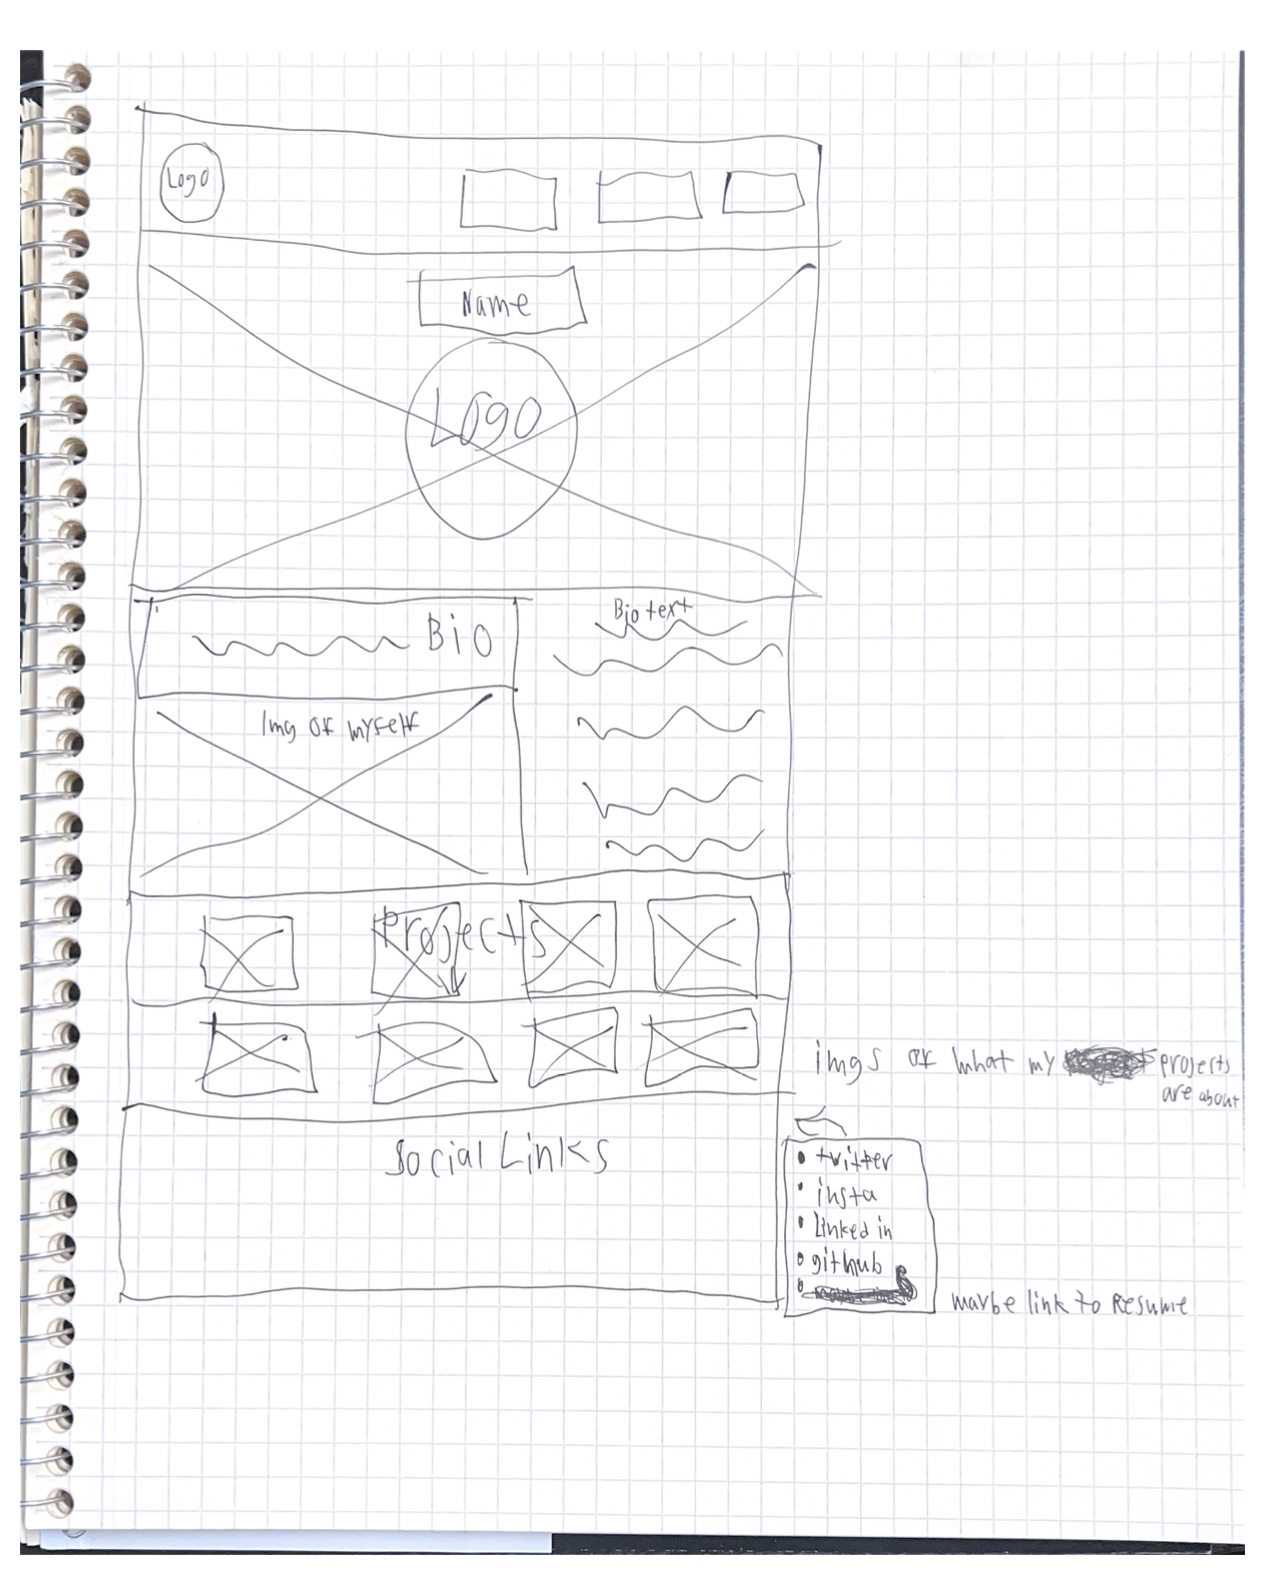 Logo
Name
Logo
Bio
Bio text
Img of myself
Projects
imgs of what my projects
are about
Social Links
• twitter
• insta
• Linked in
• github
maybe link to Resume